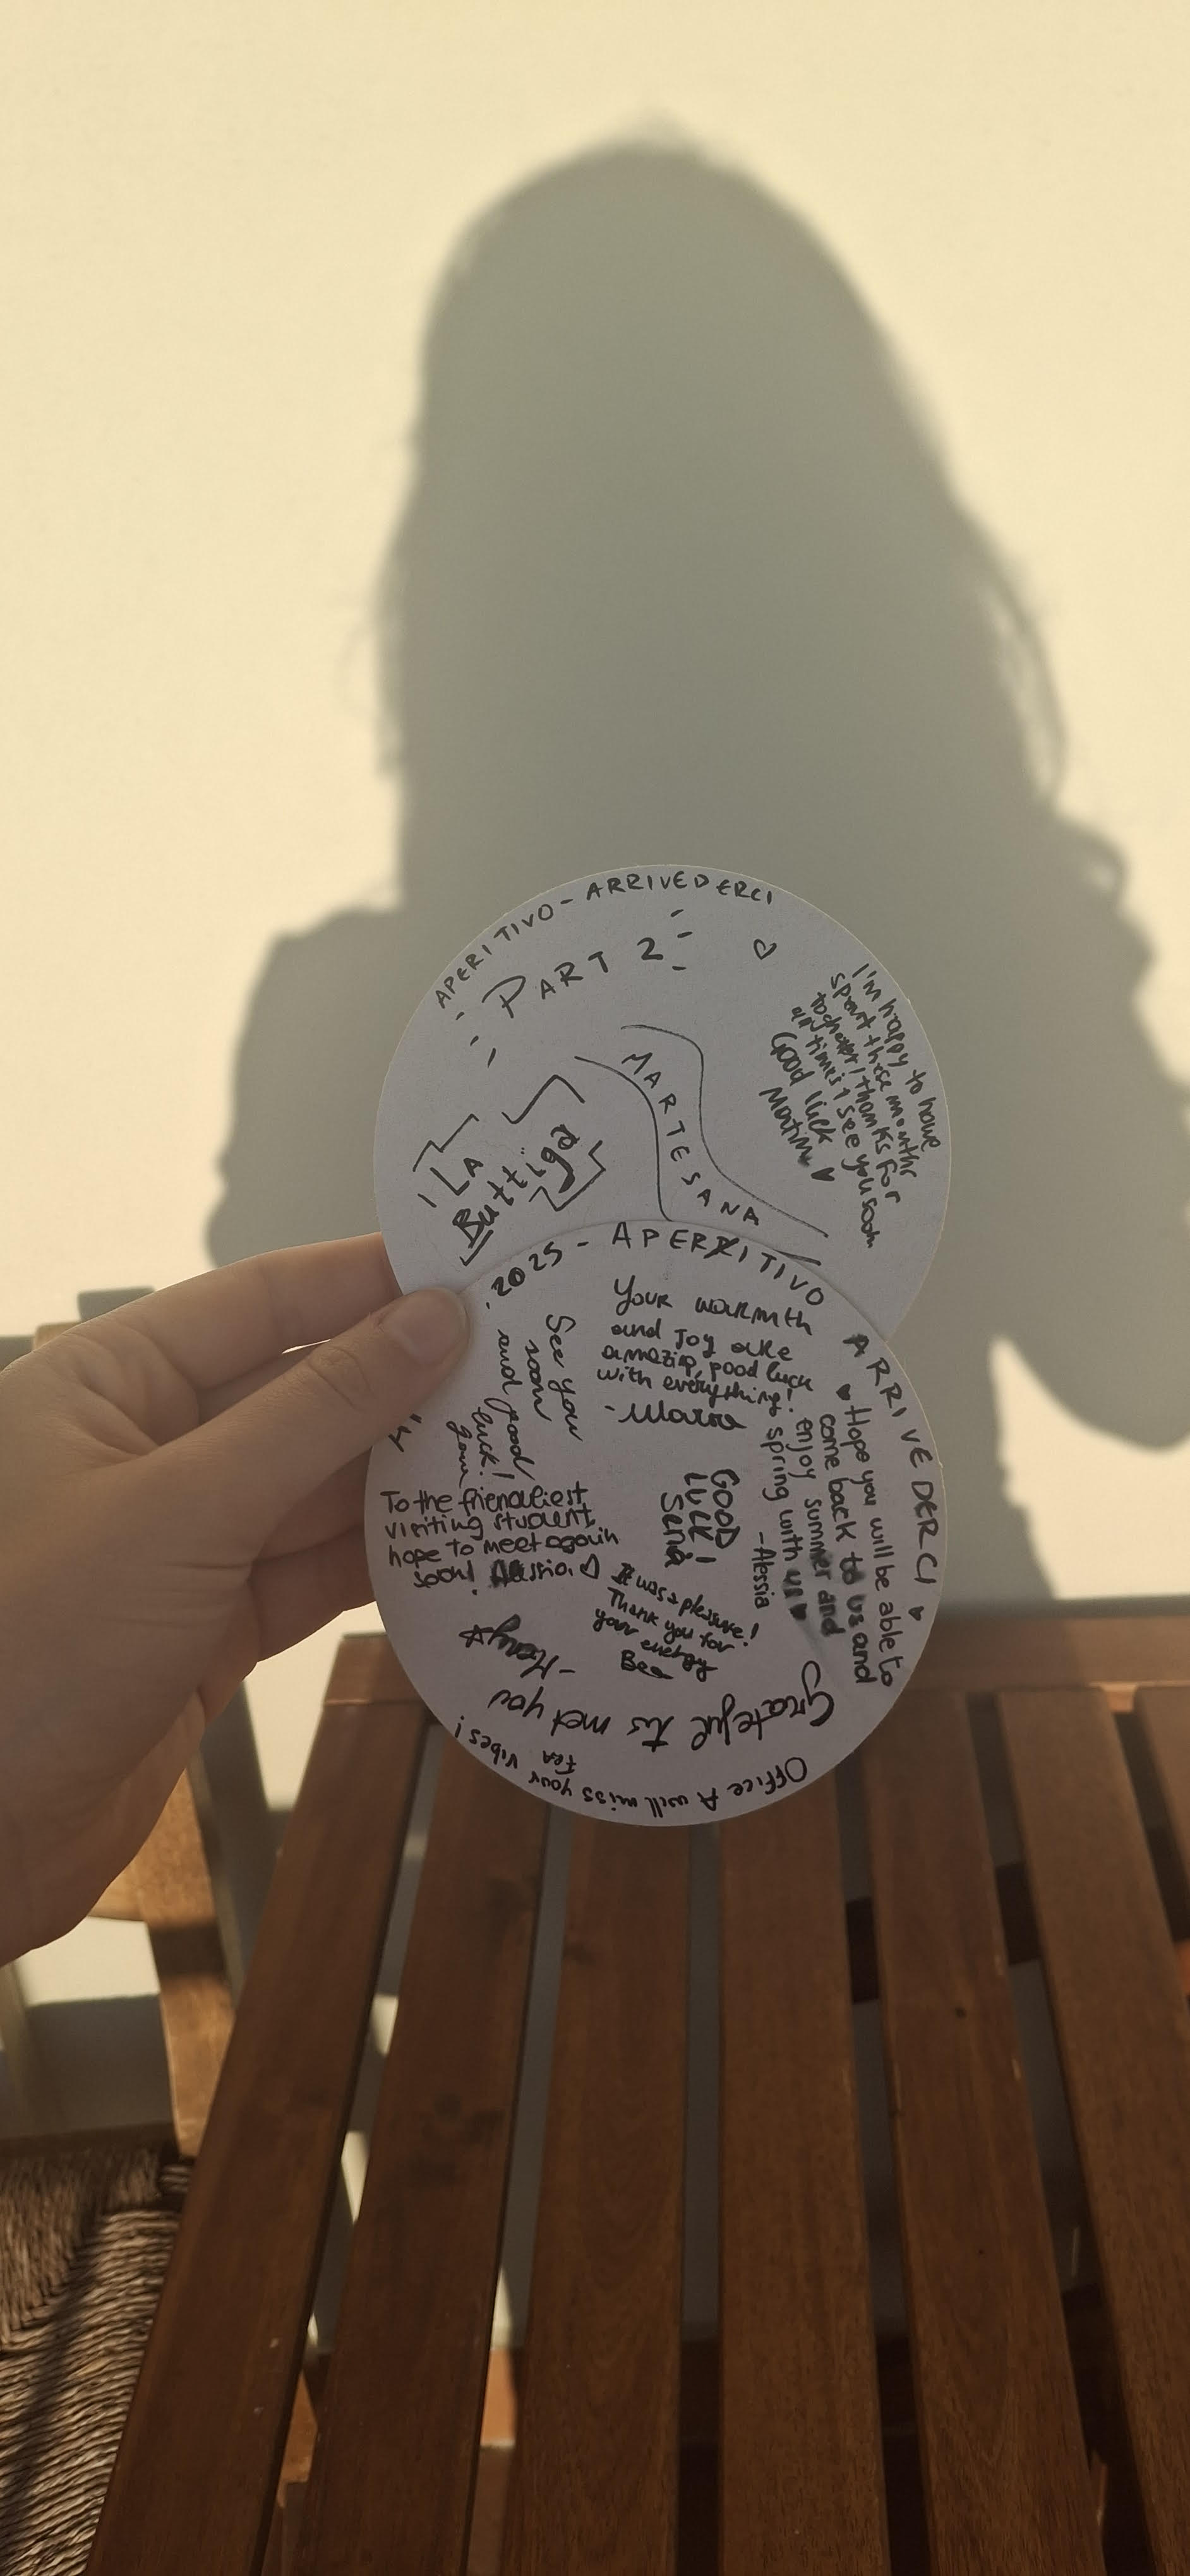 APERITIVO - ARRIVEDERCI
PART 2
MARTESANA
LA
Buttiga
I'm happy to have
spent these months
together! thanks for
any time & see you soon
Good luck
Martina
2025 - APERITIVO ARRIVEDERCI
Your warmth
and joy are
amazing, good luck
with everything!
- Maria
See you
soon
and good
luck!
Hope you will be able to
come back to us and
enjoy summer and
spring with us
- Alessia
GOOD
LUCK!
Sena
To the friendliest
visiting student
hope to meet again
soon! Alessio.
It was a pleasure!
Thank you for
your energy
Bea
Grateful to met you
Office A will miss your vibes!